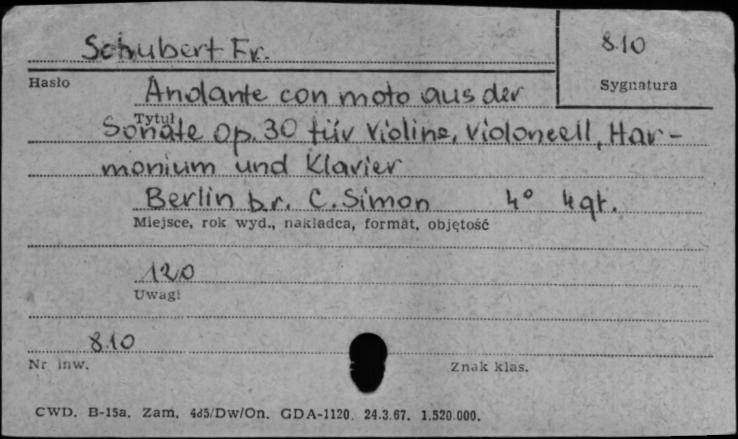 Schubert Fr.
810
Hasło
Sygnatura
Andante con moto aus der
Tytuł
Sonate Op. 30 für Violine, Violoncell, Har-
monium und Klavier
Berlin b.r. C. Simon 4° 4gt.
Miejsce, rok wyd., nakładca, format, objętość
120
Uwagi
810
Nr inw.
Znak klas.
CWD. B-15a. Zam. 485/Dw/On. GDA-1120. 24.3.67. 1.520.000.